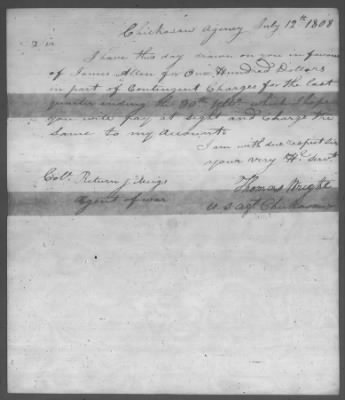 Chickasaw Agency July 12th 1808
Sir
I have this day drawn on you in favour
of James Allen for One Hundred Dollars
in part of Contingent Charges for the last
quarter ending the 30th which I hope
you will pay at sight and Charge the
Same to my Accounts
I am with due respect Sir
your very Hl. Servt.
Thomas Wright
U S Agt. Chickasaws
Col. Return J. Meigs
Agent of war